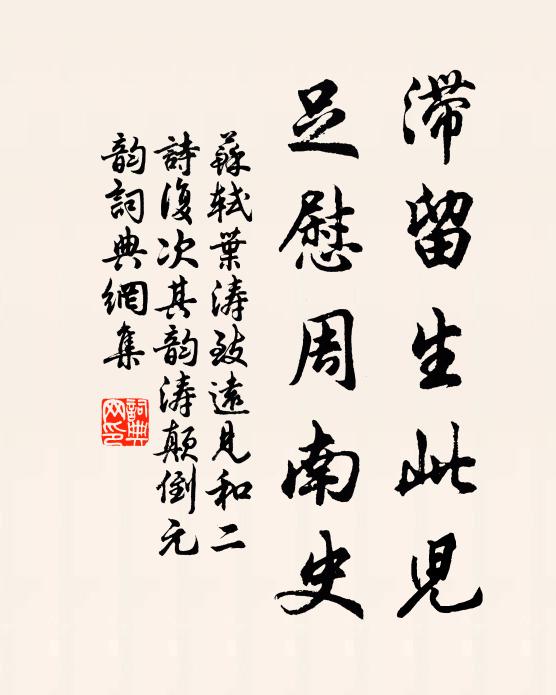 滞留生此兒
足慰周南史
蘇軾葉濤致遠見和二
詩復次其韵濤顛倒元
韵詞典網集
詞典
网印